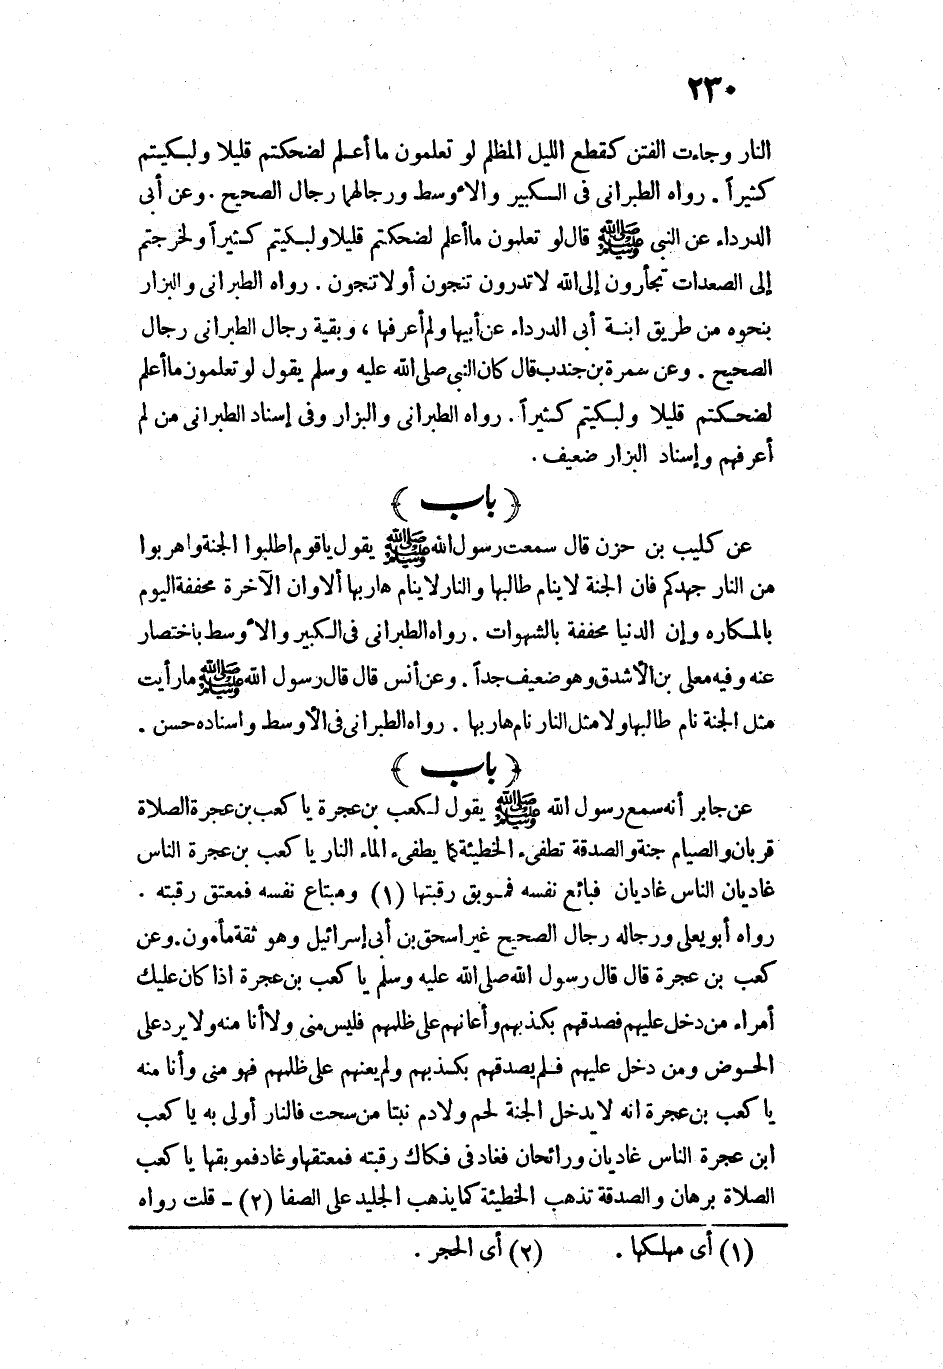 ٢٣٠
النار وجاءت الفتن كقطع الليل المظلم لو تعلمون ما أعلم لضحكتم قليلا ولبكيتم
كثيراً . رواه الطبراني في الكبير والأوسط ورجالهما رجال الصحيح . وعن أبي
الدرداء عن النبي ﷺ قال لو تعلمون ما أعلم لضحكتم قليلا ولبكيتم كثيراً ولخرجتم
إلى الصعدات تجأرون إلى الله لا تدرون تنجون أو لا تنجون . رواه الطبراني والبزار
بنحوه من طريق ابنة أبي الدرداء عن أبيها ولم أعرفها ، وبقية رجال الطبراني رجال
الصحيح . وعن سمرة بن جندب قال كان النبي صلى الله عليه وسلم يقول لو تعلمون ما أعلم
لضحكتم قليلا ولبكيتم كثيراً . رواه الطبراني والبزار وفي إسناد الطبراني من لم
أعرفهم وإسناد البزار ضعيف .
﴿ باب ﴾
عن كليب بن حزن قال سمعت رسول الله ﷺ يقول يا قوم اطلبوا الجنة واهربوا
من النار جهدكم فان الجنة لا ينام طالبها والنار لا ينام هاربها ألا وان الآخرة محففة اليوم
بالمكاره وإن الدنيا محففة بالشهوات . رواه الطبراني في الكبير والأوسط باختصار
عنه وفيه معلى بن الأشدق وهو ضعيف جداً . وعن أنس قال قال رسول الله ﷺ ما رأيت
مثل الجنة نام طالبها ولا مثل النار نام هاربها . رواه الطبراني في الأوسط واسناده حسن .
﴿ باب ﴾
عن جابر أنه سمع رسول الله ﷺ يقول لكعب بن عجرة يا كعب بن عجرة الصلاة
قربان والصيام جنة والصدقة تطفىء الخطيئة كما يطفىء الماء النار يا كعب بن عجرة الناس
غاديان الناس غاديان فبائع نفسه فموبق رقبتها (١) ومبتاع نفسه فمعتق رقبته .
رواه أبو يعلى ورجاله رجال الصحيح غير اسحق بن أبي إسرائيل وهو ثقة مأمون . وعن
كعب بن عجرة قال قال رسول الله صلى الله عليه وسلم يا كعب بن عجرة اذا كان عليك
أمراء من دخل عليهم فصدقهم بكذبهم وأعانهم على ظلمهم فليس مني ولا أنا منه ولا يرد على
الحوض ومن دخل عليهم فلم يصدقهم بكذبهم ولم يعنهم على ظلمهم فهو مني وأنا منه
يا كعب بن عجرة انه لا يدخل الجنة لحم ولا دم نبتا من سحت فالنار أولى به يا كعب
ابن عجرة الناس غاديان ورائحان فغاد في فكاك رقبته فمعتقها وغاد فموبقها يا كعب
الصلاة برهان والصدقة تذهب الخطيئة كما يذهب الجليد على الصفا (٢) - قلت رواه
(١) أي مهلكها . (٢) أي الحجر .